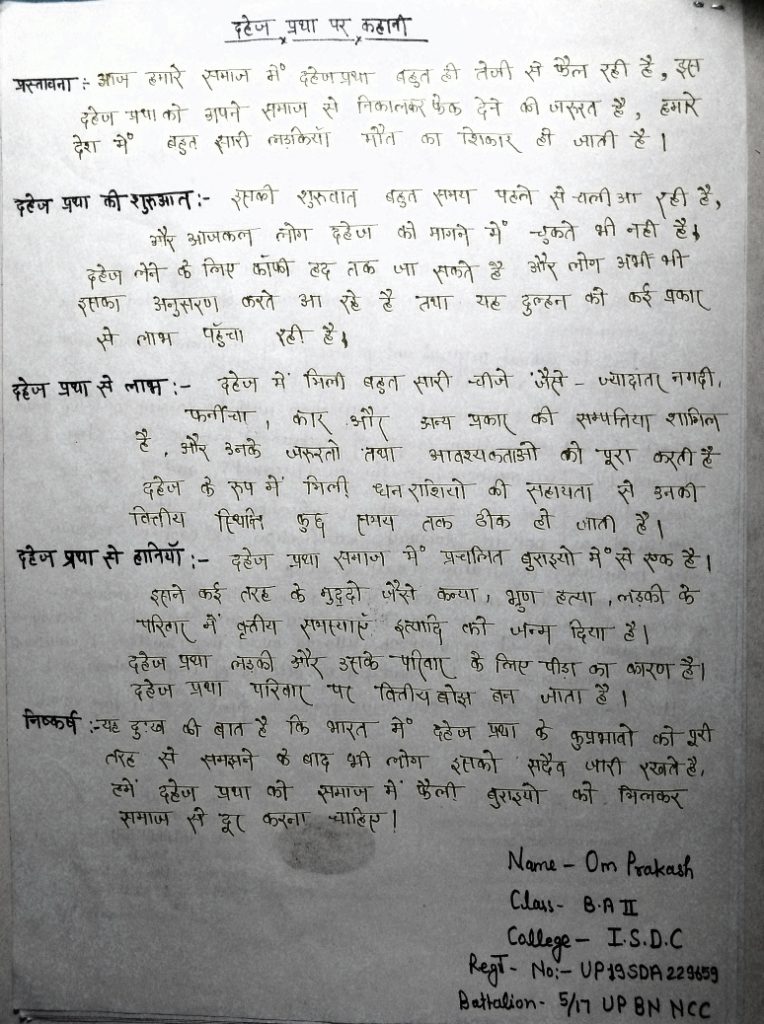 दहेज प्रथा पर कहानी
प्रस्तावना :- आज हमारे समाज में दहेज प्रथा बहुत ही तेजी से फैल रही है, इस
दहेज प्रथा को अपने समाज से निकालकर फेक देने की जरुरत है, हमारे
देश में बहुत सारी लडकियाँ मौत का शिकार हो जाती है।
दहेज प्रथा की शुरुआत :- इसकी शुरुवात बहुत समय पहले से चली आ रही है,
और आजकल लोग दहेज को मागने में चुकते भी नही है।
दहेज लेने के लिए कॉफी हद तक जा सकते है और लोग अभी भी
इसका अनुसरण करते आ रहे है तथा यह दुल्हन को कई प्रकार
से लाभ पहुँचा रही है।
दहेज प्रथा से लाभ :- दहेज में मिली बहुत सारी चीजे जैसे - ज्यादातर नगदी,
फर्नीचर, कार और अन्य प्रकार की सम्पत्तिया शामिल
है, और उनके जरुरतो तथा आवश्यकताओ को पूरा करती है
दहेज के रुप में मिली धन राशियो की सहायता से उनकी
वित्तीय स्थिति कुछ समय तक ठीक हो जाती है।
दहेज प्रथा से हानियाँ :- दहेज प्रथा समाज में प्रचलित बुराइयो में से एक है।
इसने कई तरह के मुद्दो जैसे कन्या, भ्रुण हत्या, लड़की के
परिवार में वृत्तीय समस्याएँ इत्यादि को जन्म दिया है।
दहेज प्रथा लडकी और उसके परिवार के लिए पीडा का कारण है।
दहेज प्रथा परिवार पर वित्तीय बोझ बन जाता है।
निष्कर्ष :- यह दुःख की बात है कि भारत में दहेज प्रथा के कुप्रभावो को पूरी
तरह से समझने के बाद भी लोग इसको सदैव जारी रखते है,
हमें दहेज प्रथा की समाज में फैली बुराइयो को मिलकर
समाज से दूर करना चाहिए।
Name - Om Prakash
Class - B.A II
College - I.S.D.C
Regt - No:- UP19SDA229659
Battalion - 5/17 UP BN NCC